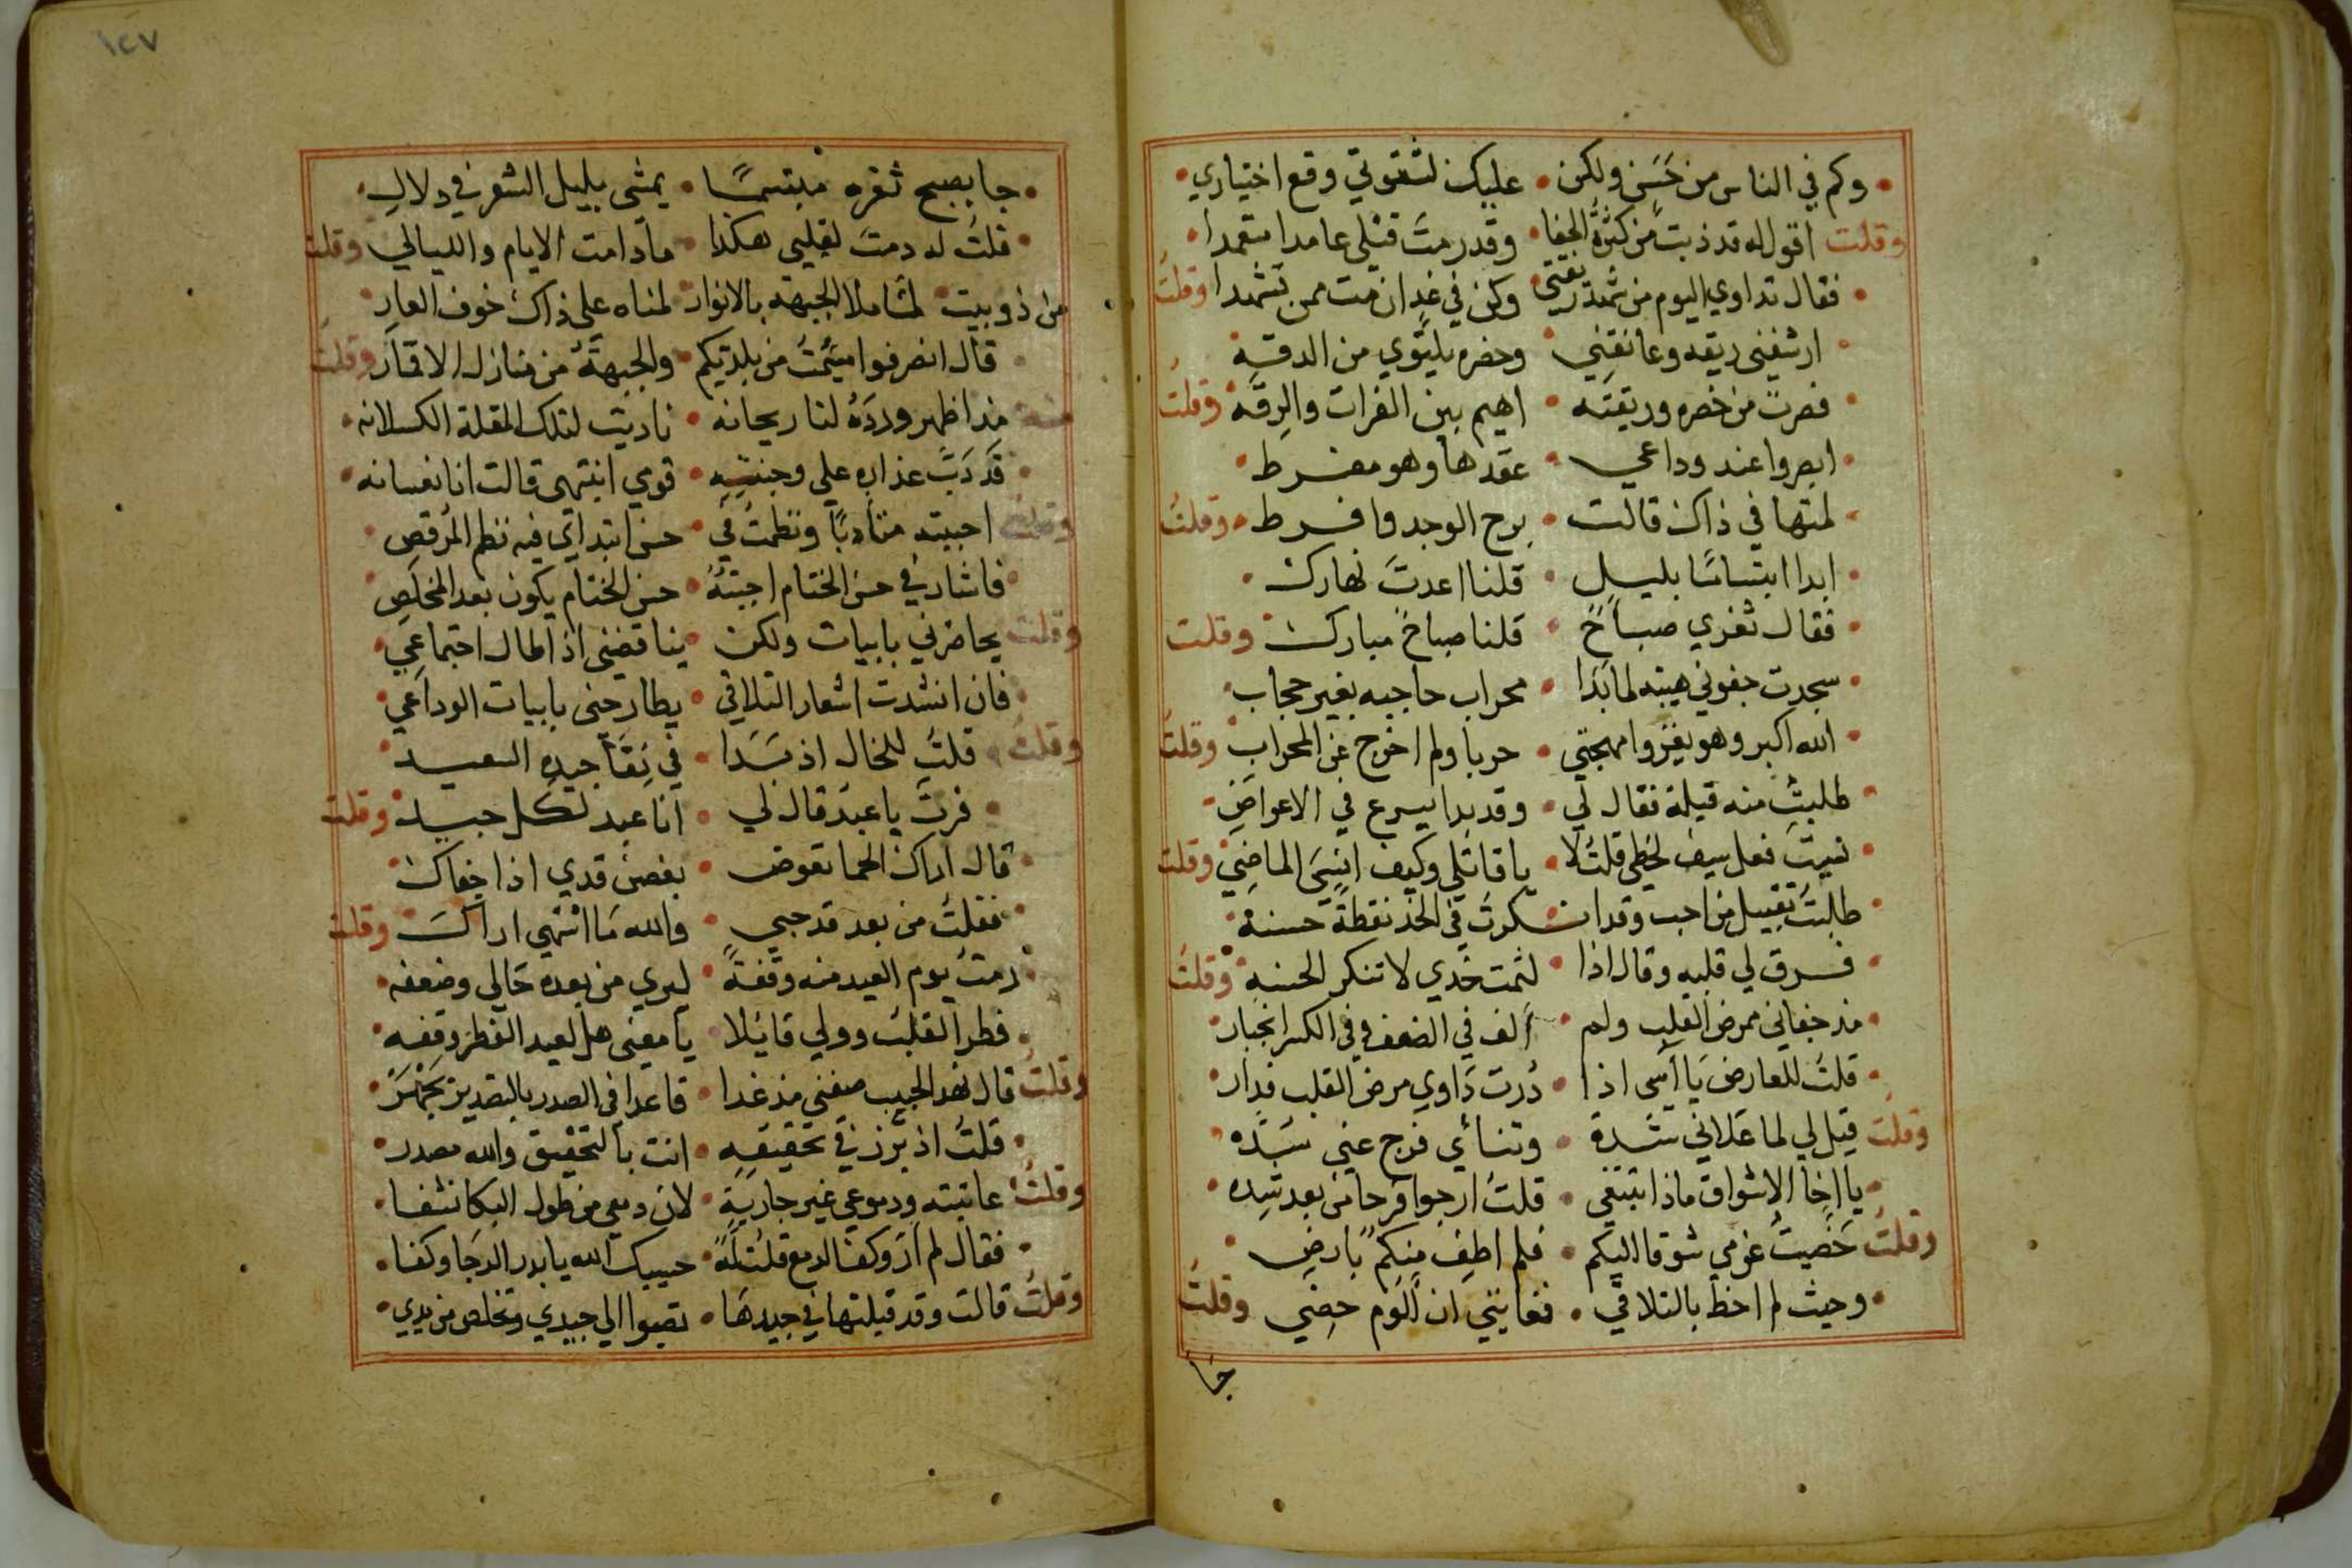 وكم في الناس من حَسَن ولكن • عليك لشقوتي وقع اختياري
وقلت اقول له قد ذبت من كثرة الجفا • وقد رمت قتلي عامدا متعمدا
فقال تداوي اليوم من شهد ريقتي • وكن في غد ان مت ممن تشهدا وقلت
ارشفني ريقه وعانقني • وخصره يلتوي من الدقه
فصرت من خصره وريقته • اهيم بين الفرات والرقه وقلت
ابصروا عند وداعي • عقدها وهو مفرط
لمتها في ذاك قالت • برح الوجد وافرط • وقلت
ابدا ابتساما بليل • قلنا اعدت نهارك
فقال ثغري صباح • قلنا صباح مبارك وقلت
سجدت جفوني هيبة لما بدا • محراب حاجبه بغير حجاب
الله اكبر وهو يغزوا مهجتي • حربا ولم اخرج عن المحراب وقلت
طلبت منه قبلة فقال لي • وقد بدا يسرع في الاعراض
نسيت فعل سيف لحظي قلت لا • يا قاتلي وكيف انسى الماضي وقلت
طلبت تقبيل من احب وقد انكرت في الخد نقطة حسنة
فرق لي قلبه وقال اذا • لثمت خدي لا تنكر الحسنه وقلت
مذ جفاني ممرض القلب ولم • الف في الضعف وفي الكسر انجبار
قلت للعارض يا آسى اذا • درت داوي مرض القلب فدار
وقلت قيل لي لما علاني شدة • وتنائي فرج عني سده
يا اخا الاشواق ماذا تبتغي • قلت ارجوا فرحا من بعد شده
وقلت خصيت عزمي شوقا اليكم • فلم اطف منكم بارض
وحيث لم احظ بالتلاقي • فغايتي ان الوم حضي وقلت
جا
١٤٧
جا بصبح ثغره مبتسما • يمشي بليل الشعر في دلال
قلت له دمت لقلبي هكذا • ما دامت الايام والليالي وقلت
من ذوبيت لما ملا الجبهة بالانوار • لمناه على ذاك خوف العار
قال انصرفوا سئمت من بلدتكم • والجبهة من منازل الاقمار وقلت
منه مذ اظهر ورده لنا ريحانه • ناديت لتلك المقلة الكسلانه
قد دب عذاره على وجنته • قومي انتهى قالت انا نعسانه
وقلت احببته متادبا ونظمت في • حسن ابتدائي فيه نظم المرقص
فاشار في حسن الختام اجبته • حسن الختام يكون بعد المخلص
وقلت يحاضرني بابيات ولكن • يناقضني اذا طال اجتماعي
فان انشدت اشعار التلاقي • يطارحني بابيات الوداعي
وقلت قلت للخال اذ بدا • في نقا جيده السعيد
فزت يا عبد قال لي • انا عبد لكل جيد وقلت
قال اراك الحما تعوض • بغصن قدي اذا جفاك
فقلت من بعد قد حبي • والله ما اشتهي اراك وقلت
رمت يوم العيد منه وقفة • ليري من بعده حالي وضعفه
فطر القلب وولي قائلا • يا معنى هل لعيد الفطر وقفه
وقلت قال نهد الحبيب صفني مذ غدا • قاعدا في الصدر بالتصدير يجهر
قلت اذ برز في تحقيقه • انت بالتحقيق والله مصدر
وقلت عاتبته ودموعي غير جارية • لان دمعي من طول البكا نشفا
فقال لم ار وكف الدمع قلت له • حسيبك الله يا بدر الدجا وكفا
وقلت قالت وقد قبلتها في جيدها • تصبوا الي جيدي وتخلص من يدي